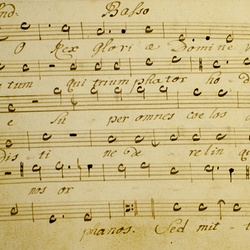 Basso
O Rex Gloriæ Domine
tum qui triumphator ho-
e su per omnes coelos
Dis ti ne de- relin qu
nos or
phanos. Sed mit-